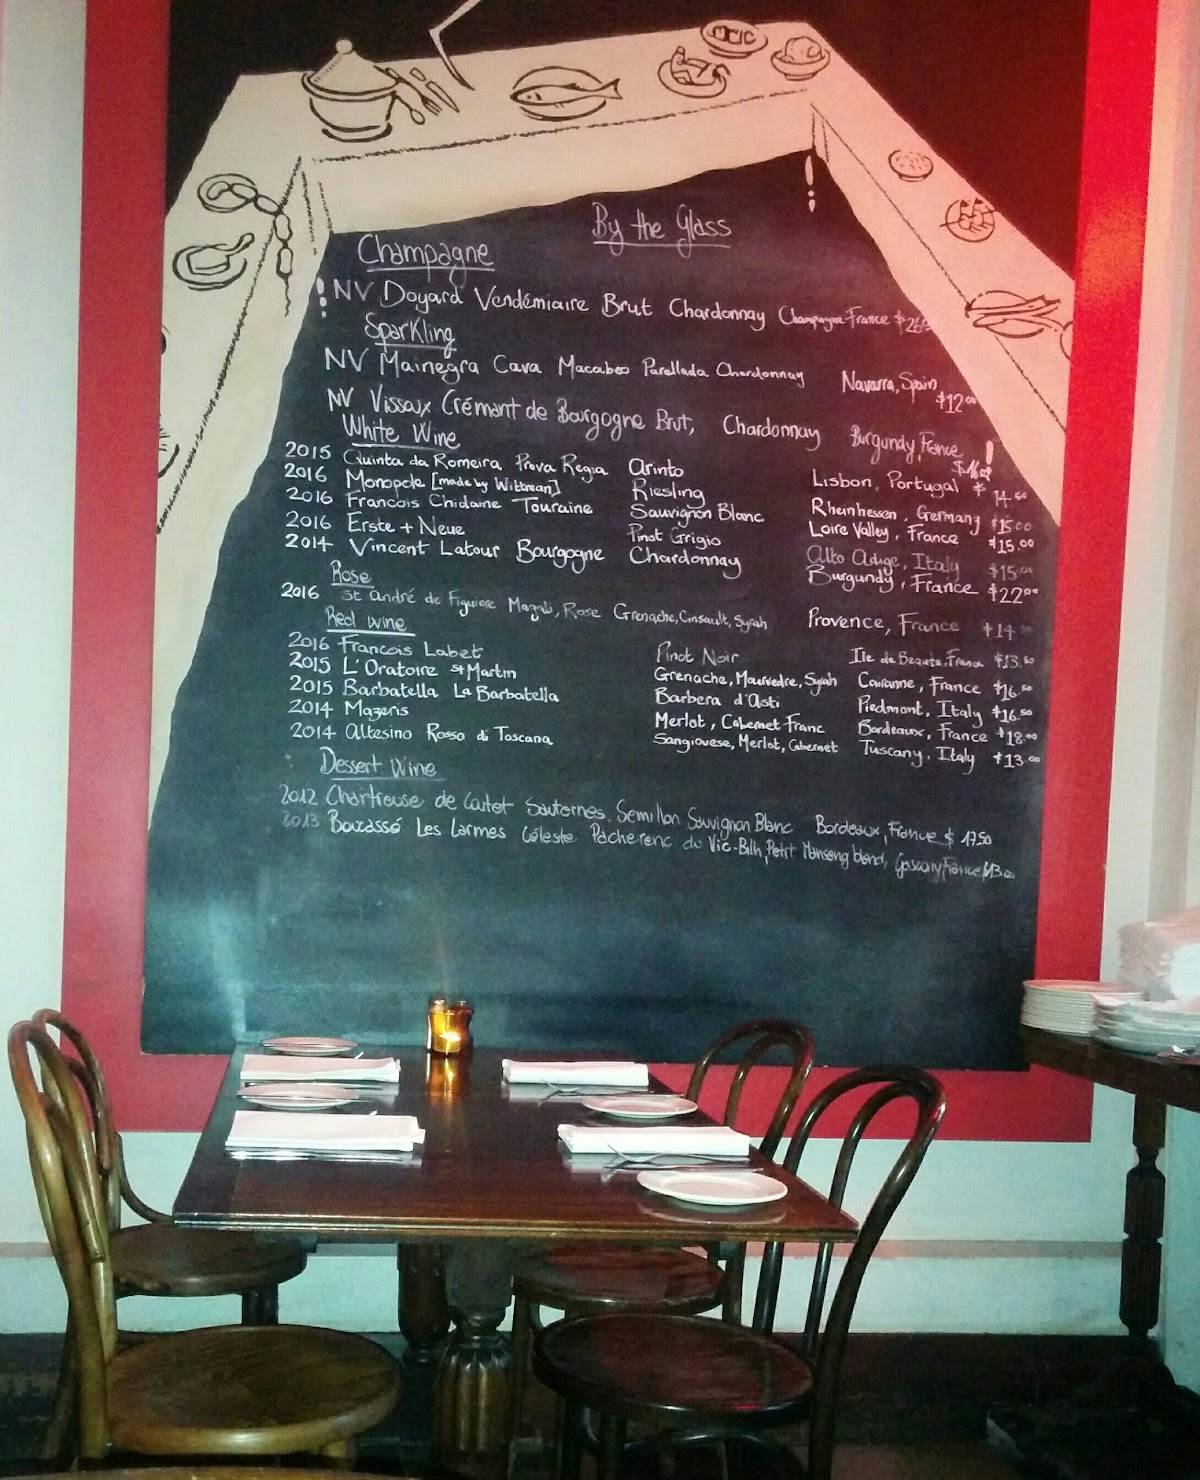 By the Glass
Champagne
NV Doyard Vendémiaire Brut Chardonnay Champagne France $26
Sparkling
NV Mainegra Cava Macabeo Parellada Chardonnay Navarra, Spain $12
NV Vissoux Crémant de Bourgogne Brut, Chardonnay Burgundy, France $16
White Wine
2015 Quinta da Romeira Prova Regia Arinto Lisbon, Portugal $14.50
2016 Monopole [made by Wittman] Riesling Rheinhessen, Germany $15.00
2016 Francois Chidaine Touraine Sauvignon Blanc Loire Valley, France $15.00
2016 Erste + Neue Pinot Grigio Alto Adige, Italy $15.00
2014 Vincent Latour Bourgogne Chardonnay Burgundy, France $22.00
Rose
2016 St André de Figuiere Magali, Rose Grenache, Cinsault, Syrah Provence, France $14
Red wine
2016 Francois Labet Pinot Noir Ile de Beauta, France $13.50
2015 L'Oratoire St Martin Grenache, Mourvedre, Syrah Cairanne, France $16.50
2015 Barbatella La Barbatella Barbera d'Asti Piedmont, Italy $16.50
2014 Mazeris Merlot, Cabernet Franc Bordeaux, France $18.00
2014 Altesino Rosso di Toscana Sangiovese, Merlot, Cabernet Tuscany, Italy $13.00
Dessert Wine
2012 Chartreuse de Coutet Sauternes, Semillon Sauvignon Blanc Bordeaux, France $17.50
2013 Boucassé Les Larmes Céleste Pacherenc du Vic-Bilh, Petit Manseng blend, Gascony, France $13.00